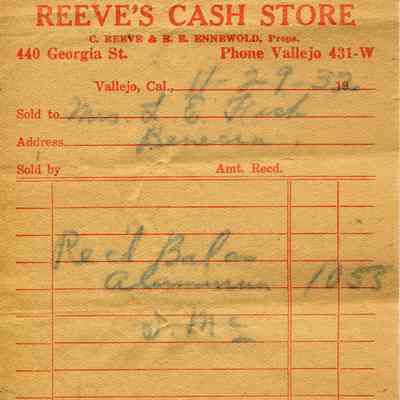 REEVE'S CASH STORE
C. REEVE & E. E. ENNEWOLD, Props.
440 Georgia St. Phone Vallejo 431-W
Vallejo, Cal., 11-29-32 19
Sold to Mrs. L E Fish
Address Benecia,
Sold by Amt. Recd.
Rec'd Balan
Aluminum 1053
J. Mc